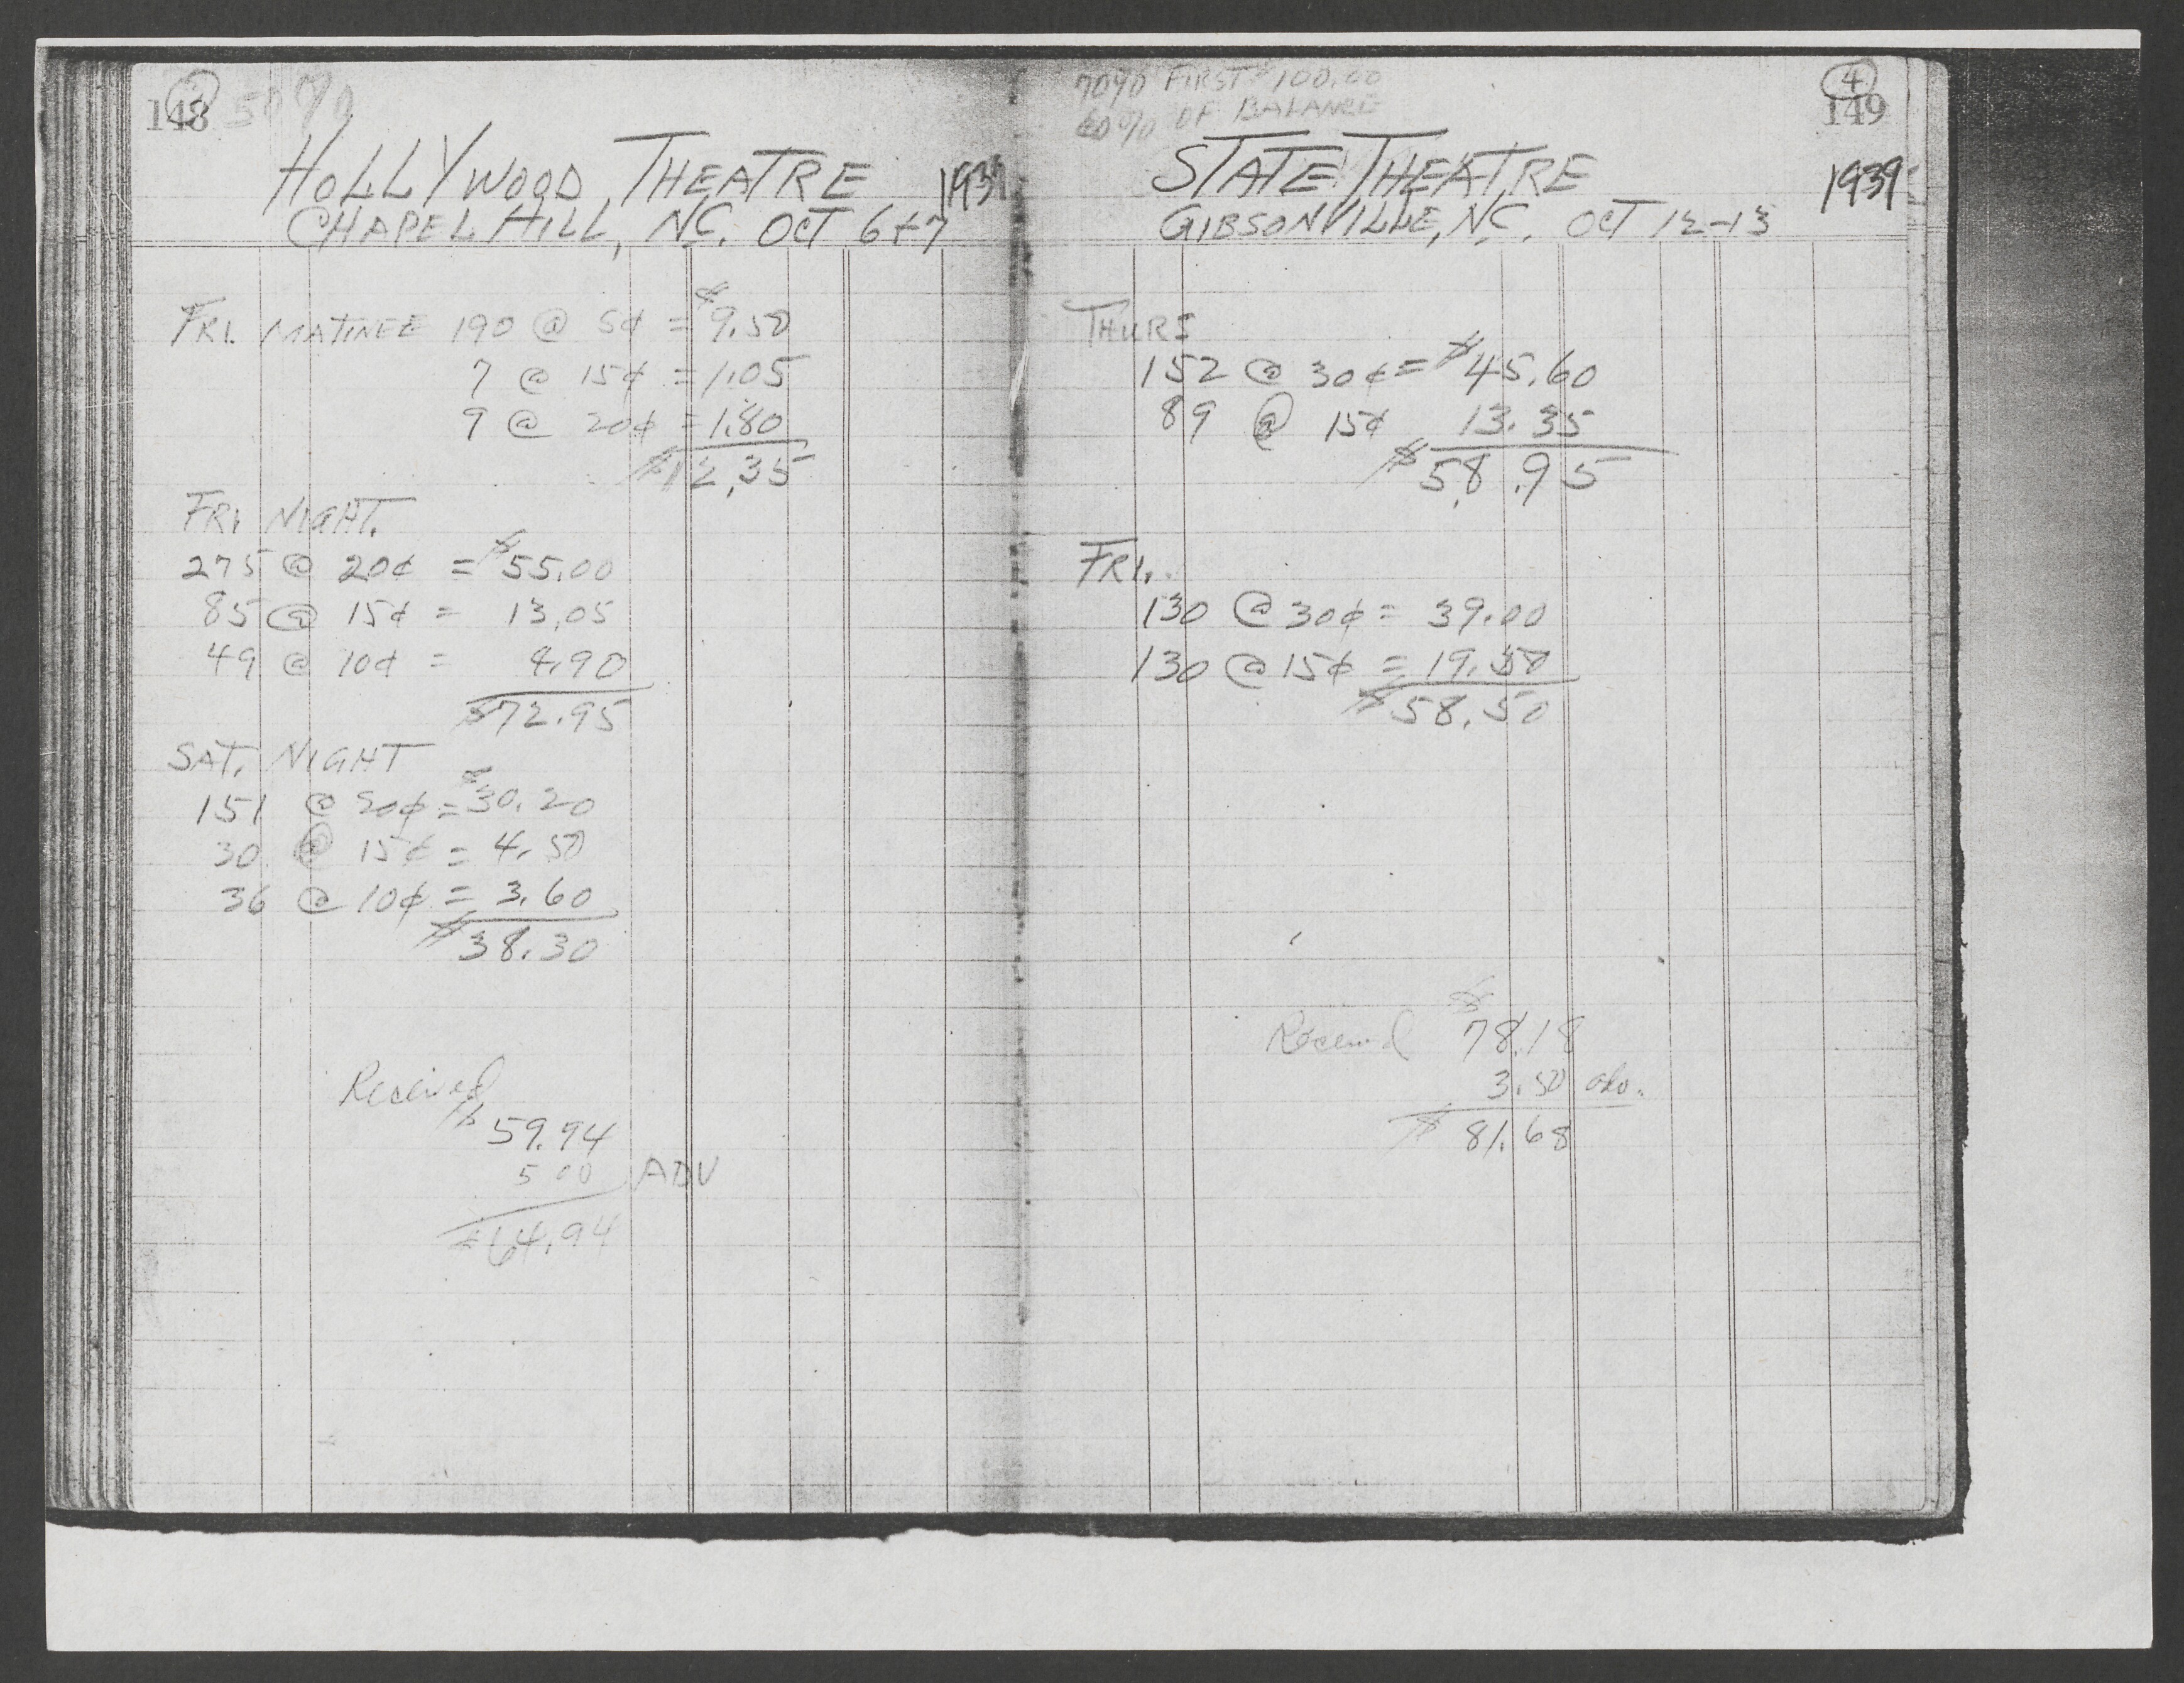 148 50%
HOLLYWOOD THEATRE 1939
CHAPEL HILL, N.C. OCT 6+7
FRI. MATINEE 190 @ 5¢ = $9.50
7 @ 15¢ = 1.05
9 @ 20¢ = 1.80
$12.35
FRI NIGHT.
275 @ 20¢ = $55.00
85 @ 15¢ = 13.05
49 @ 10¢ = 4.90
$72.95
SAT. NIGHT
151 @ 20¢ = $30.20
30 @ 15¢ = 4.50
36 @ 10¢ = 3.60
$38.30
Received
$59.94
5 00 ADV
$64.94
70% FIRST $100.00
60% OF BALANCE
4
149
STATE THEATRE 1939
GIBSONVILLE, N.C. OCT 12-13
THURS
152 @ 30¢ = $45.60
89 @ 15¢ 13.35
$58.95
FRI.
130 @ 30¢ = 39.00
130 @ 15¢ = 19.50
$58.50
Received $78.18
3.50 adv.
$81.68